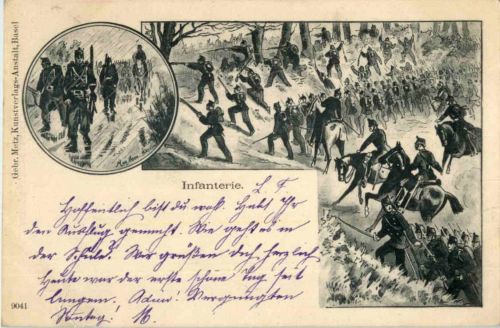 Gebr. Metz, Kunstverlags-Anstalt, Basel
Infanterie.
Hoffentlich bist du wohl. Habt Ihr
den Ausflug gemacht. Wie geht es in
der Schule? Wir grüßen dich herzlich
Heute war der erste schöne Tag seit
langem. Adieu! Vergnügten
Sontag!
9041